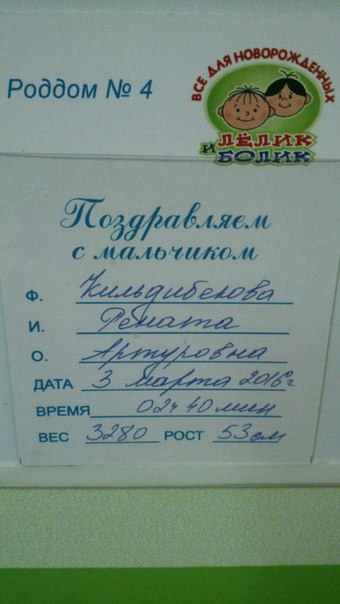 Роддом № 4
ВСЕ ДЛЯ НОВОРОЖДЕННЫХ
ЛЁЛИК
И БОЛИК
Поздравляем
с мальчиком
Ф. Кильдибекова
И. Рената
О. Артуровна
ДАТА 3 марта 2016г
ВРЕМЯ 02ч 40 мин
ВЕС 3280 РОСТ 53 см